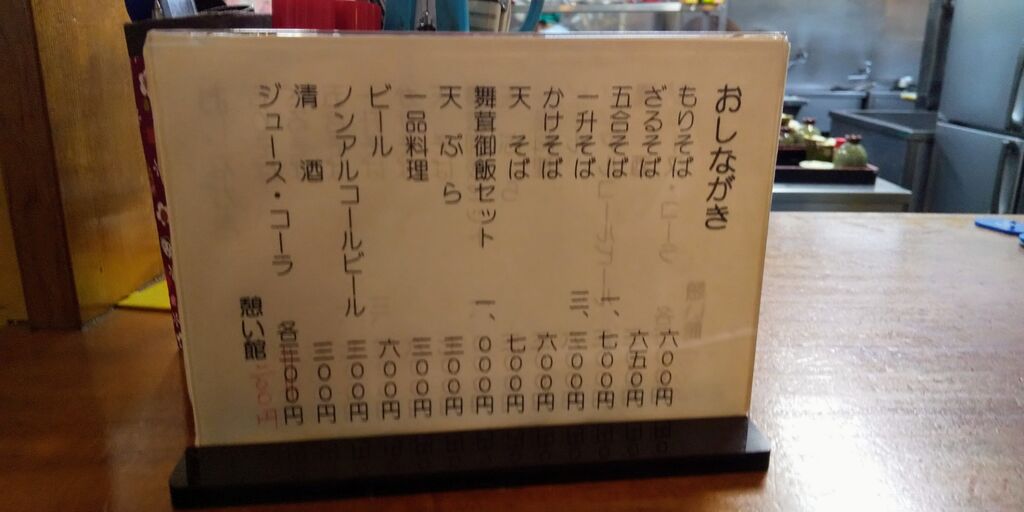 おしながき
もりそば 六〇〇円
ざるそば 六五〇円
五合そば 一、七〇〇円
一升そば 三、三〇〇円
かけそば 六〇〇円
天そば 七〇〇円
舞茸御飯セット 一、〇〇〇円
天ぷら 三〇〇円
一品料理 三〇〇円
ビール 六〇〇円
ノンアルコールビール 三〇〇円
清酒 三〇〇円
ジュース・コーラ 各三〇〇円
憩い館